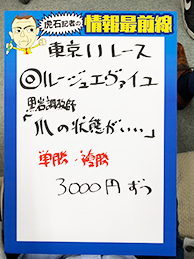 虎石記者の
情報最前線
東京11レース
◎ルージュエヴァイユ
黒岩調教師
「爪の状態がいい」
単勝・複勝
3000円ずつ